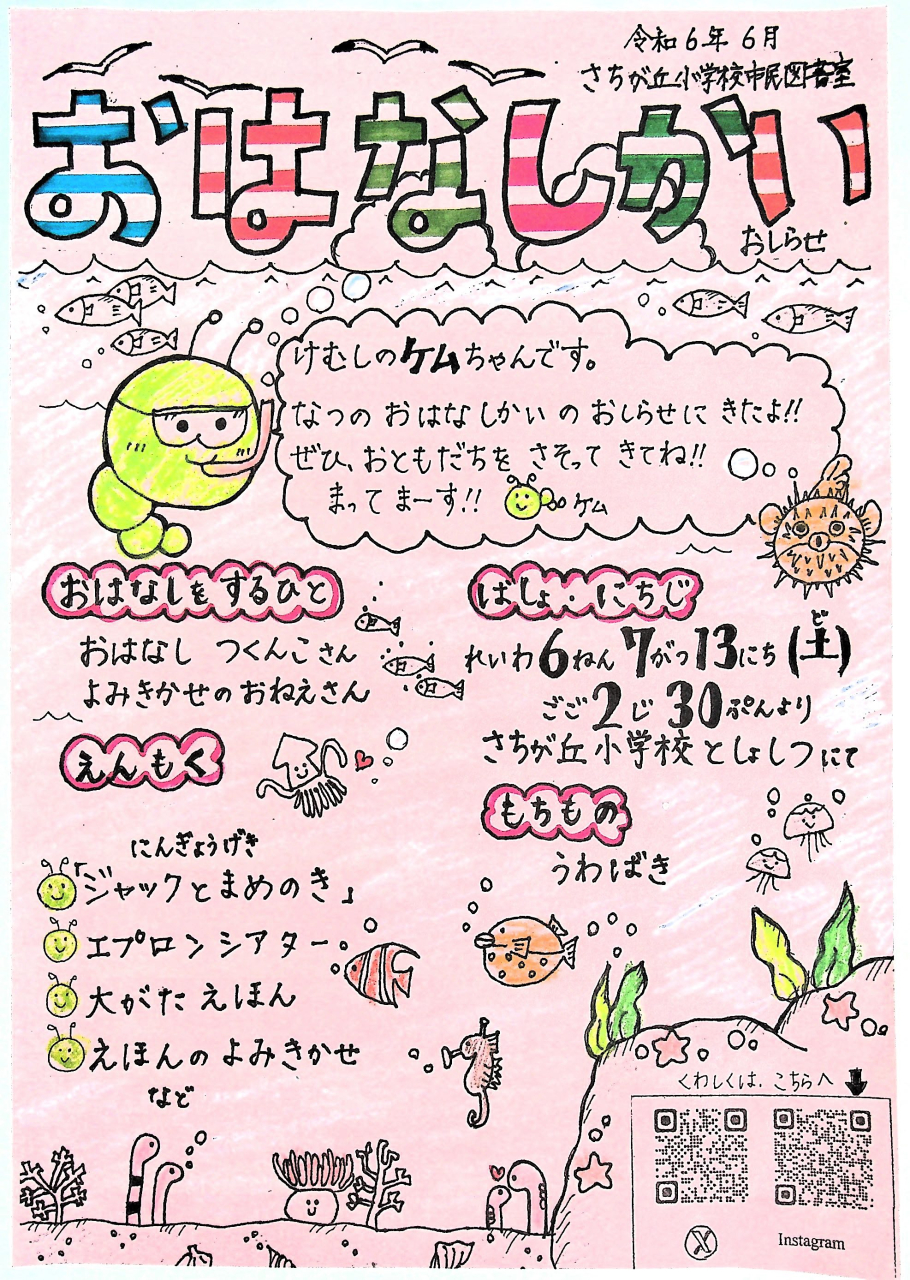 令和6年 6月
さちが丘小学校市民図書室
おはなしかい
おしらせ
けむしのケムちゃんです。
なつの おはなしかい の おしらせに きたよ!!
ぜひ、おともだちを さそって きてね!!
まってまーす!! ケム
おはなしをするひと
おはなし つくんこさん
よみきかせのおねえさん
ばしょ・にちじ
れいわ6ねん 7がつ13にち (土)
ど
ごご2じ30ぷんより
さちが丘小学校としょしつにて
えんもく
にんぎょうげき
「ジャックとまめのき」
エプロンシアター
大がたえほん
えほんのよみきかせ
など
もちもの
うわばき
くわしくは、こちらへ
X
Instagram